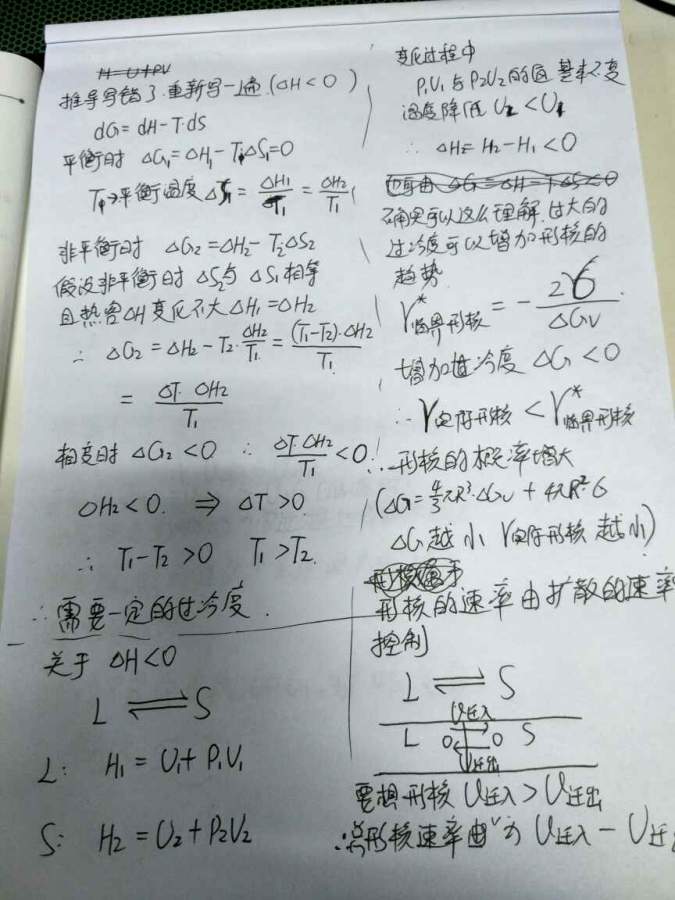 H=U+PV
推导写错了.重新写一遍.(△H<0)
dG=dH-T·dS
平衡时 △G₁=△H₁-T₁△S₁=0
T₁→平衡温度 △S₁=△H₁/T₁=△H₂/T₁
非平衡时 △G₂=△H₂-T₂△S₂
假设非平衡时△S₂与△S₁相等
且热容△H变化不大△H₁=△H₂
∴ △G₂=△H₂-T₂·△H₂/T₁=(T₁-T₂)·△H₂/T₁
=△T·△H₂/T₁
相变时△G₂<0 ∴ △T·△H₂/T₁<0
△H₂<0. ⇒ △T>0
∴ T₁-T₂>0 T₁>T₂.
∴需要一定的过冷度.
关于 △H<0
L ⇌ S
L: H₁=U₁+P₁V₁
S: H₂=U₂+P₂V₂
变化过程中
P₁V₁与P₂V₂的值基本不变
温度降低 U₂<U₁
∴ △H=H₂-H₁<0
△G=△H-T△S<0
确实可以这么理解.过大的
过冷度可以增加形核的
趋势
r*临界形核=-2σ/△Gv
增加过冷度 △G<0
∴ r实际形核<r*临界形核
∴形核的概率增大
(△G=4/3πR³·△Gv+4πR²·σ
△G越小 r实际形核越小)
形核的速率由扩散的速率
控制
L ⇌ S
U迁入
L O O S
U迁出
要想形核 U迁入>U迁出
∴总形核速率由v为 U迁入-U迁